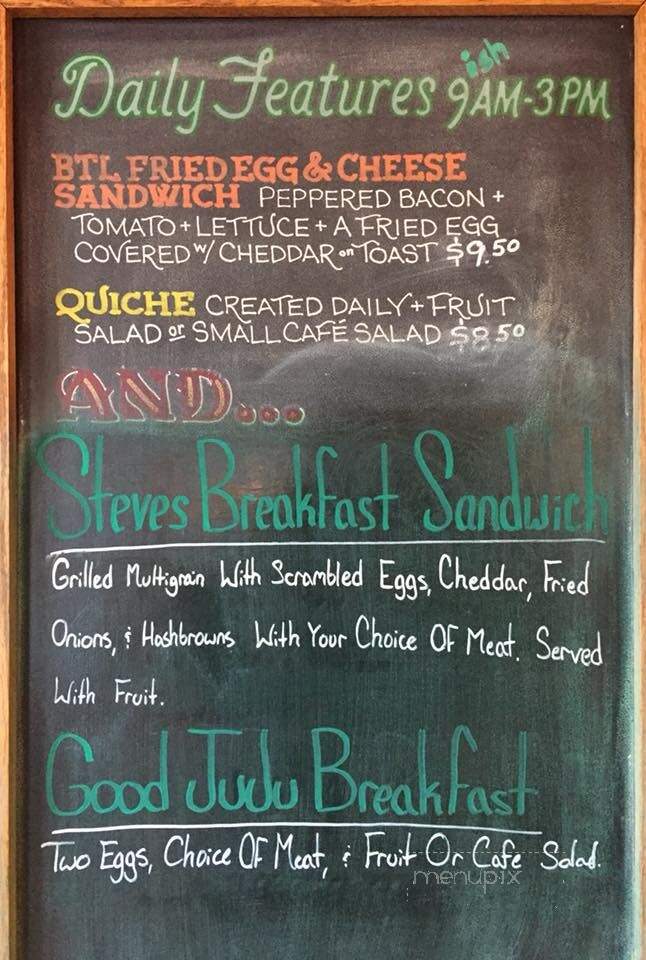 Daily Features 9ish AM-3PM
BTL FRIED EGG & CHEESE
SANDWICH PEPPERED BACON +
TOMATO + LETTUCE + A FRIED EGG
COVERED W/ CHEDDAR on TOAST $9.50
QUICHE CREATED DAILY + FRUIT
SALAD or SMALL CAFÉ SALAD $8.50
AND...
Steves Breakfast Sandwich
Grilled Multigrain With Scrambled Eggs, Cheddar, Fried
Onions, & Hashbrowns With Your Choice Of Meat. Served
With Fruit.
Good JuJu Breakfast
Two Eggs, Choice Of Meat, & Fruit Or Cafe Salad.
menupix